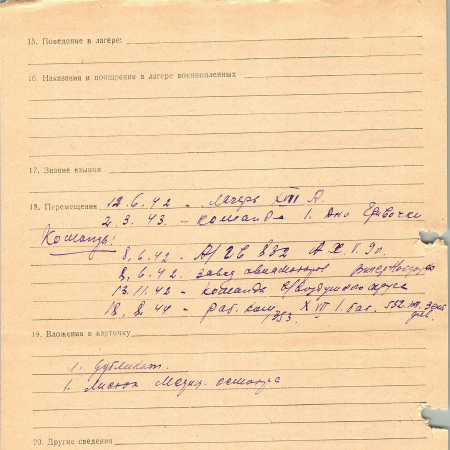 15. Поведение в лагере:
16. Наказания и поощрения в лагере военнопленных
17. Знание языков
18. Перемещения 12.6.42 - лагерь XIII A
2.3.43. - команда 1.
Команды:
8.6.42 -
8.6.42. завод авиамоторов
13.11.42 - команда
18.8.44 - раб. ком. XIII 1. бат.
1053
19. Вложения в карточку
1. Дубликат.
1. Листок Медиц. осмотра
20. Другие сведения